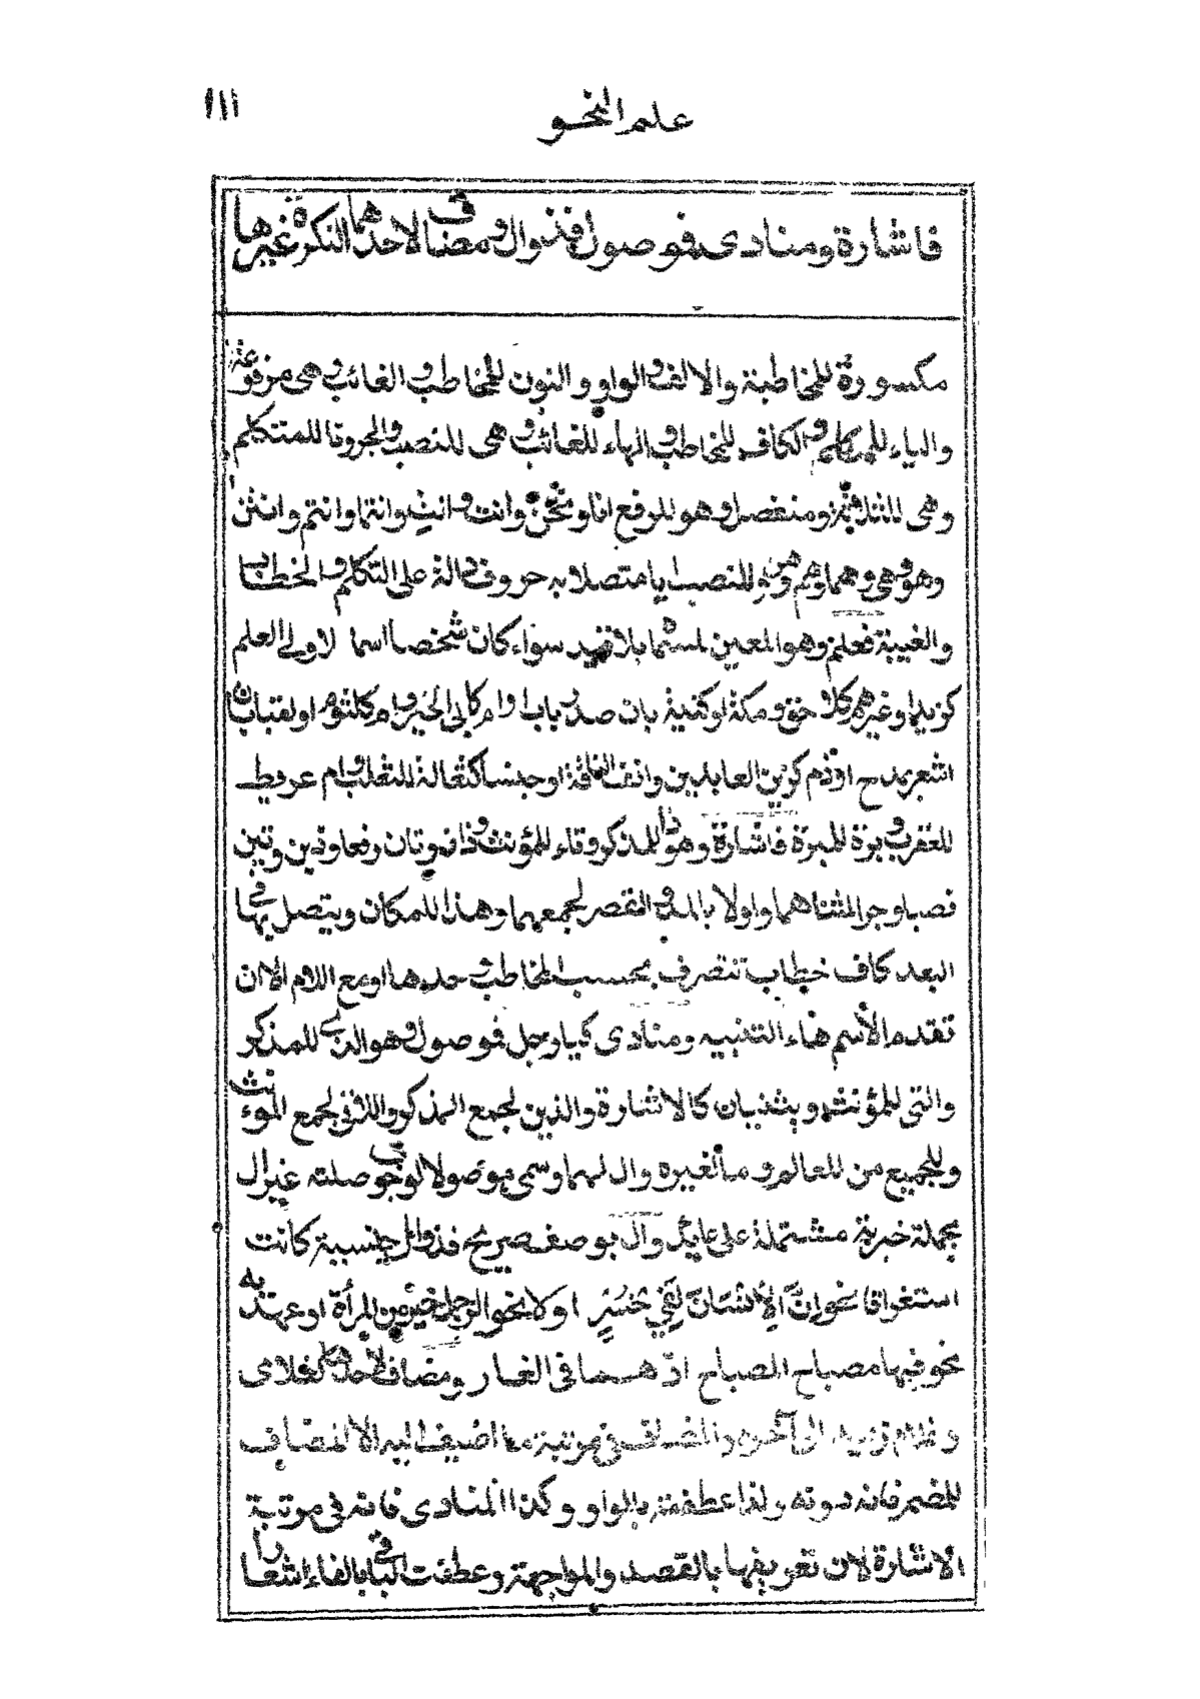 علم النحو
١١١
فاشارة ومنادى فموصول فذو ال ومضاف لاحدها النكرة غيرها
مكسورة للمخاطبة والالف والواو والنون للمخاطب والغائب وهى مرفوعة
والياء للمتكلم والكاف للمخاطب والهاء للغائب وهى للنصب والجر ونا للمتكلم
وهى للثلاثة ومنفصل وهو للرفع انا ونحن وانت وانت وانتما وانتم وانتن
وهو وهى وهما وهم وهن وللنصب ايا متصلا به حروف دالة على التكلم والخطاب
والغيبة فعلم وهو المعين لمسماه بلا قيد سواء كان شخصا اسما لاولى العلم
كزيد او غيرهم كلاحق ومكة او كنية بان صدر باب او ام كابى الخير وام كلثوم او لقبا بان
اشعر بمدح او ذم كزين العابدين وانف الناقة او جنسا كثعالة للثعلب وام عريط
للعقرب وبرة للمبرة فاشارة وهو ذا للمذكر وتاء للمؤنث وذان وتان رفعا وذين وتين
نصبا وجرا لمثناهما واولاء بالمد والقصر لجمعهما وهنا للمكان ويتصل بها فى
البعد كاف خطاب تتصرف بحسب المخاطب وحدها او مع اللام الا ان
تقدم الاسم هاء التنبيه ومنادى كيا رجل فموصول وهو الذى للمذكر
والتى للمؤنث ويثنيان كالاشارة والذين لجمع المذكر واللاتى لجمع الموءنث
وللجميع من للعالم وما لغيره وال لهما وسمى موصولا لوجوب صلته غير ال
بجملة خبرية مشتملة على عايد وال بوصف صريح فذو ال جنسية كانت
استغراقا نحو اِنَّ الْاِنْسَانَ لَفِي خُسْرٍ او لا نحو الرجل خير من المرأة او عهدية
نحو فيها مصباح المصباح اذ هما فى الغار ومضاف لاحدها كغلامى
وغلام زيد الى آخره والمضاف فى مرتبة ما اضيف اليه الا المضاف
للمضمر فانه دونه ولذا عطفته بالواو وكذا المنادى فانه فى مرتبة
الاشارة لان تعريفها بالقصد والمواجهة وعطفت الباقى بالفاء اشعارا